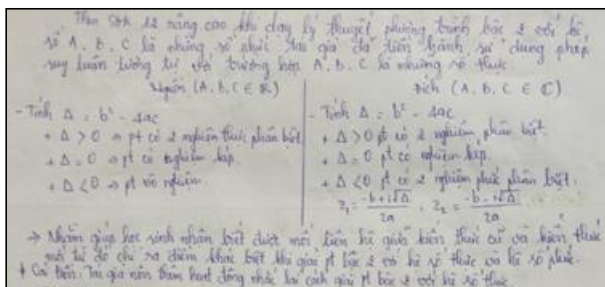 Theo SGK 12 nâng cao khi dạy lý thuyết phương trình bậc 2 với hệ
số A, B, C là những số phức, tác giả đã tiến hành sử dụng phép
suy luận tương tự với trường hợp A, B, C là những số thực.
Nguồn (A, B, C ∈ ℝ)
- Tính Δ = b² - 4ac
+ Δ > 0 → pt có 2 nghiệm thực phân biệt.
+ Δ = 0 → pt có nghiệm kép.
+ Δ < 0 → pt vô nghiệm.
Đích (A, B, C ∈ ℂ)
- Tính Δ = b² - 4ac
+ Δ > 0 pt có 2 nghiệm phân biệt.
+ Δ = 0 pt có nghiệm kép.
+ Δ < 0 pt có 2 nghiệm phức phân biệt.
z₁ = (-b + i√Δ)/2a , z₂ = (-b - i√Δ)/2a
→ Nhằm giúp học sinh nhận biết được mối liên hệ giữa kiến thức cũ và kiến thức
mới từ đó chỉ ra điểm khác biệt khi giải pt bậc 2 với hệ số thực và hệ số phức.
+ Cải tiến: Tác giả nên thêm hoạt động nhắc lại cách giải pt bậc 2 với hệ số thực.